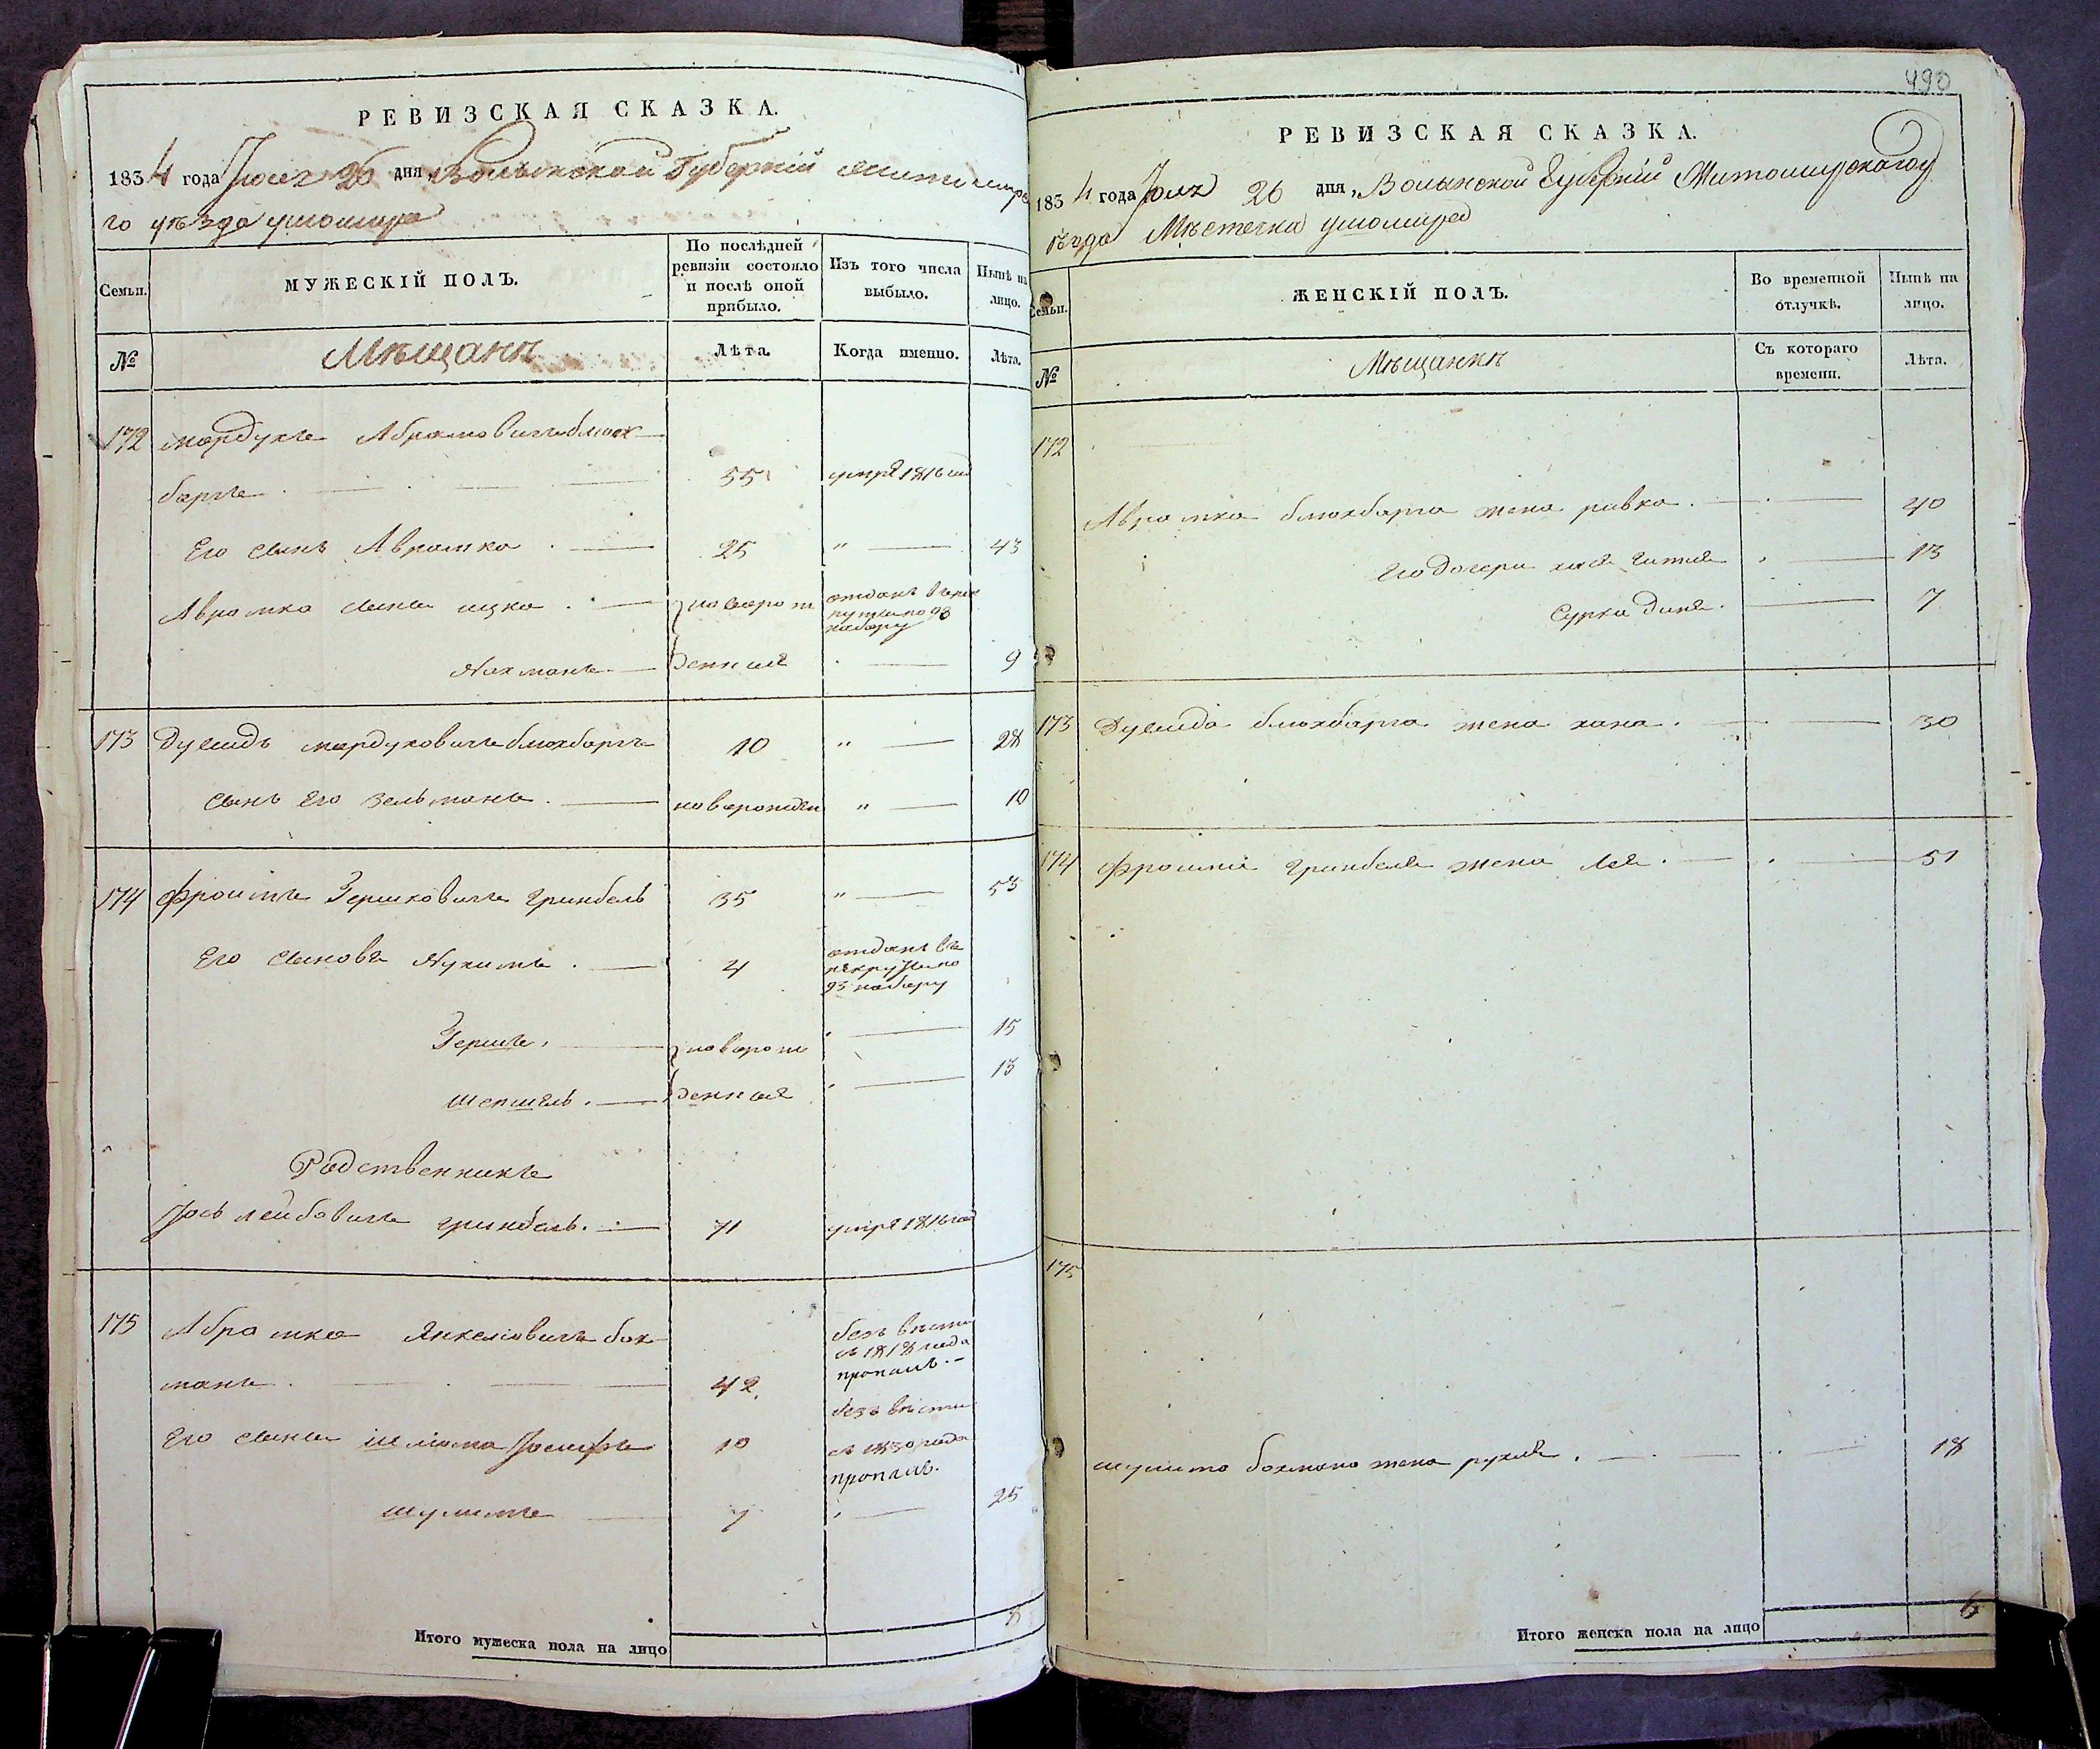 РЕВИЗСКАЯ СКАЗКА.
1834 года Июля 26 дня, Волынской Губерніи Житомирска
го уѣзда ушомира
Семьи.
МУЖЕСКІЙ ПОЛЪ.
По послѣдней ревизіи состояло и послѣ оной прибыло.
Изъ того числа выбыло.
Нынѣ на лицо.
№
Мѣщане
Лѣта.
Когда именно.
Лѣта.
172 мордухъ Абрамовичъ блюх
баргъ 55 умре 1816 год
Его сынъ Аврамко 25 " 43
Аврамка сыны ицко новорож отданъ в рек
руты по 93
набору
Нахманъ денные 9
173 Дувидъ мордуховичъ блюхбаргъ 10 " 28
сынъ его Зельманъ новорожден " 10
174 Фроимъ Гершковичъ гринбель 35 " 53
Его сыновя Нухимъ 4 отданъ въ
рекруты по
93 набору
Гершъ новорож 15
шепшель денные 13
Родственникъ
Іось лейбовичъ гринбель 71 умре 1816 год
175 Абрамко Янкеліовичъ бох
манъ 42 безъ вѣсти
съ 1818 года
пропалъ
Его сыны шліома Іосифъ 10 безъ вѣсти
съ 1830 года
пропалъ
шулимъ 7 25
Итого мужеска пола на лицо 8
490
РЕВИЗСКАЯ СКАЗКА.
1834 года Июля 26 дня, Волынской Губерніи Житомирскаго у
ѣзда Мѣстечка ушомира
Семьи.
ЖЕНСКІЙ ПОЛЪ.
Во временной отлучкѣ.
Нынѣ на лицо.
№
Мѣщанки
Съ котораго времени.
Лѣта.
172
Аврамка блюхбарга жена ривка 40
Его дочери хая гитля 13
Сурка дина 7
173 Дувида блюхбарга жена хана 30
174 Фроима гринбеля жена лея 51
175
шулима бохмана жена рухля 18
Итого женска пола на лицо 6